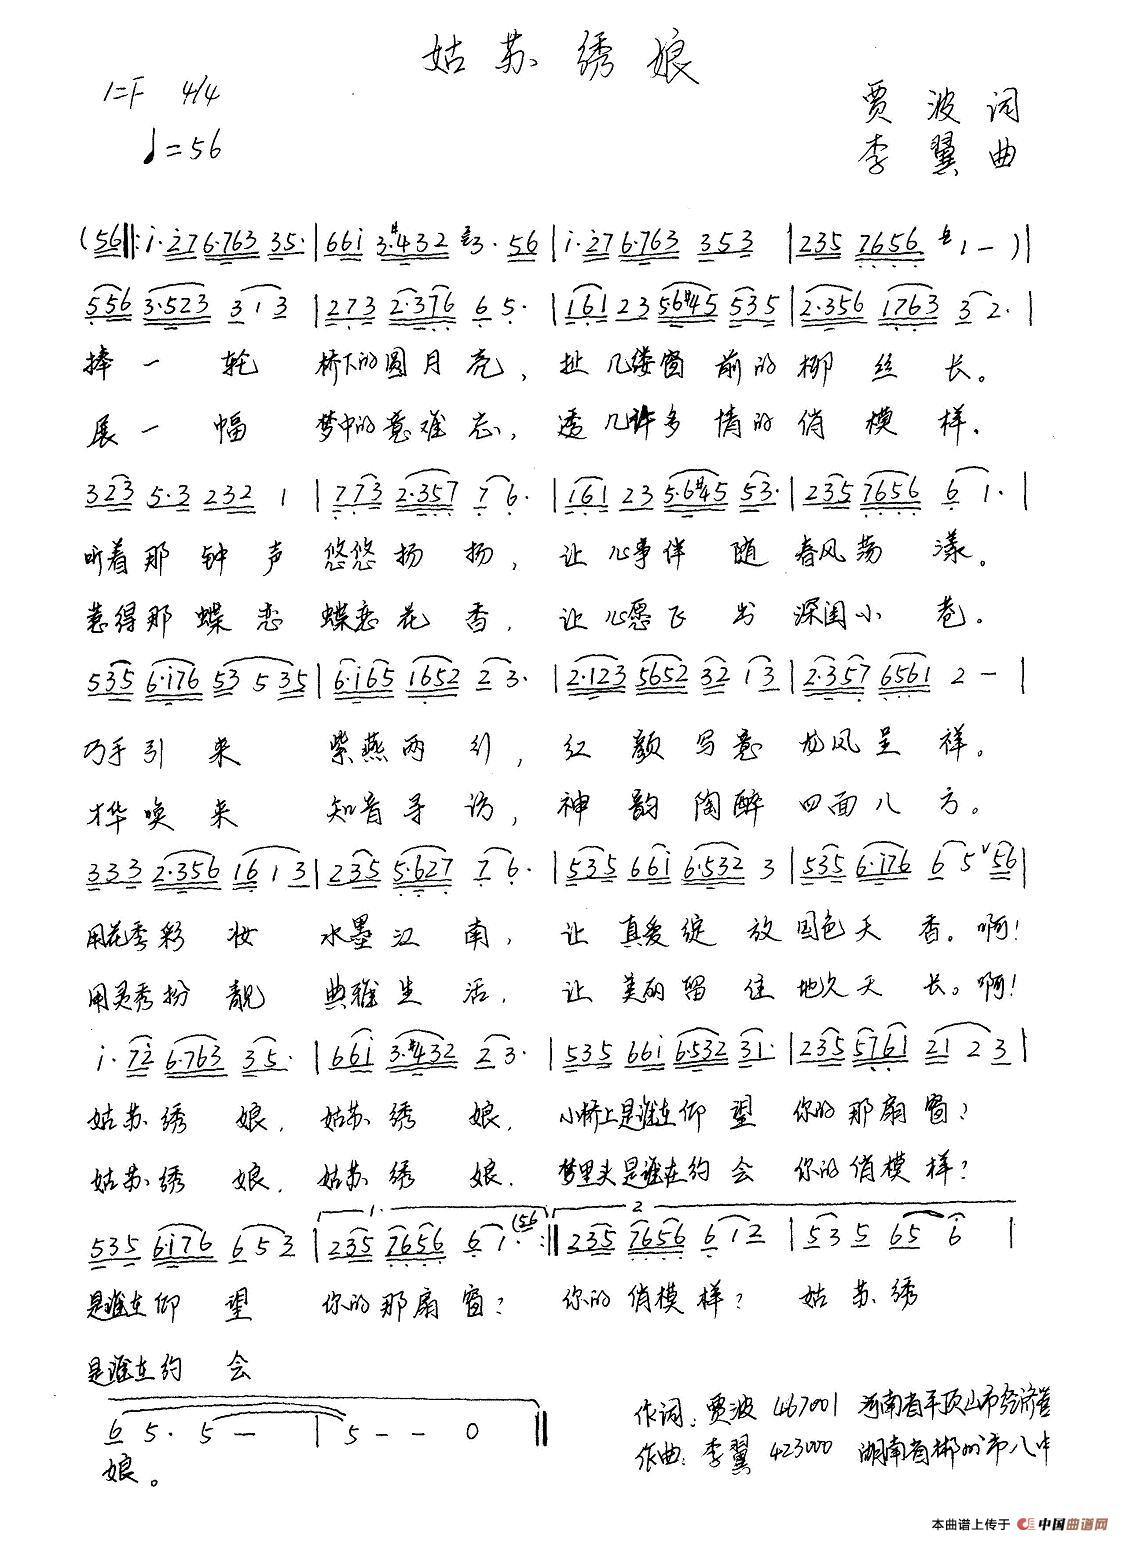 姑苏绣娘
1=F 4/4
贾波词
♩=56
李翼曲
(56‖: i·276·763 35· | 661 3·#432 3·56 | i·276·763 353 | 235 7656 1 - ) |
556 3·523 313 | 273 2·376 65· | 161 23 56#45 535 | 2·356 1763 32· |
捧一轮 桥下的圆月亮，扯几缕窗前的柳丝长。
展一幅 梦中的意难忘，透几许多情的俏模样。
323 5·3 232 1 | 773 2·357 76· | 161 23 5·6#45 53· | 235 7656 61· |
听着那钟声悠悠扬扬，让心事伴随春风荡漾。
惹得那蝶恋蝶恋花香，让心愿飞出深闺小巷。
535 6·i76 53 535 | 6·i65 1652 23· | 2·123 5652 32 13 | 2·357 6561 2 - |
巧手引来 紫燕两行，红颜写意龙凤呈祥。
才华唤来 知音寻访，神韵陶醉四面八方。
333 2·356 16 13 | 235 5·627 76· | 535 66i 6·532 3 | 535 6·i76 65ˇ56 |
用花秀彩妆 水墨江南，让真爱绽放国色天香。啊！
用灵秀扮靓 典雅生活，让美丽留住地久天长。啊！
i·7i 6·763 35· | 66i 3·#432 23· | 535 66i 6·532 31· | 235 5761 21 23 |
姑苏绣娘，姑苏绣娘，小桥上是谁在仰望你的那扇窗？
姑苏绣娘，姑苏绣娘，梦里头是谁在约会你的俏模样？
1. 2.
535 6i76 653 | 235 7656 61· (56 :‖ 235 7656 612 | 535 65 6 |
是谁在仰望 你的那扇窗？你的俏模样？姑苏绣
是谁在约会
65· 5 - | 5 - - 0 ‖
娘。
作词：贾波 467001 河南省平顶山市经济管
作曲：李翼 423000 湖南省郴州市八中
本曲谱上传于 中国曲谱网